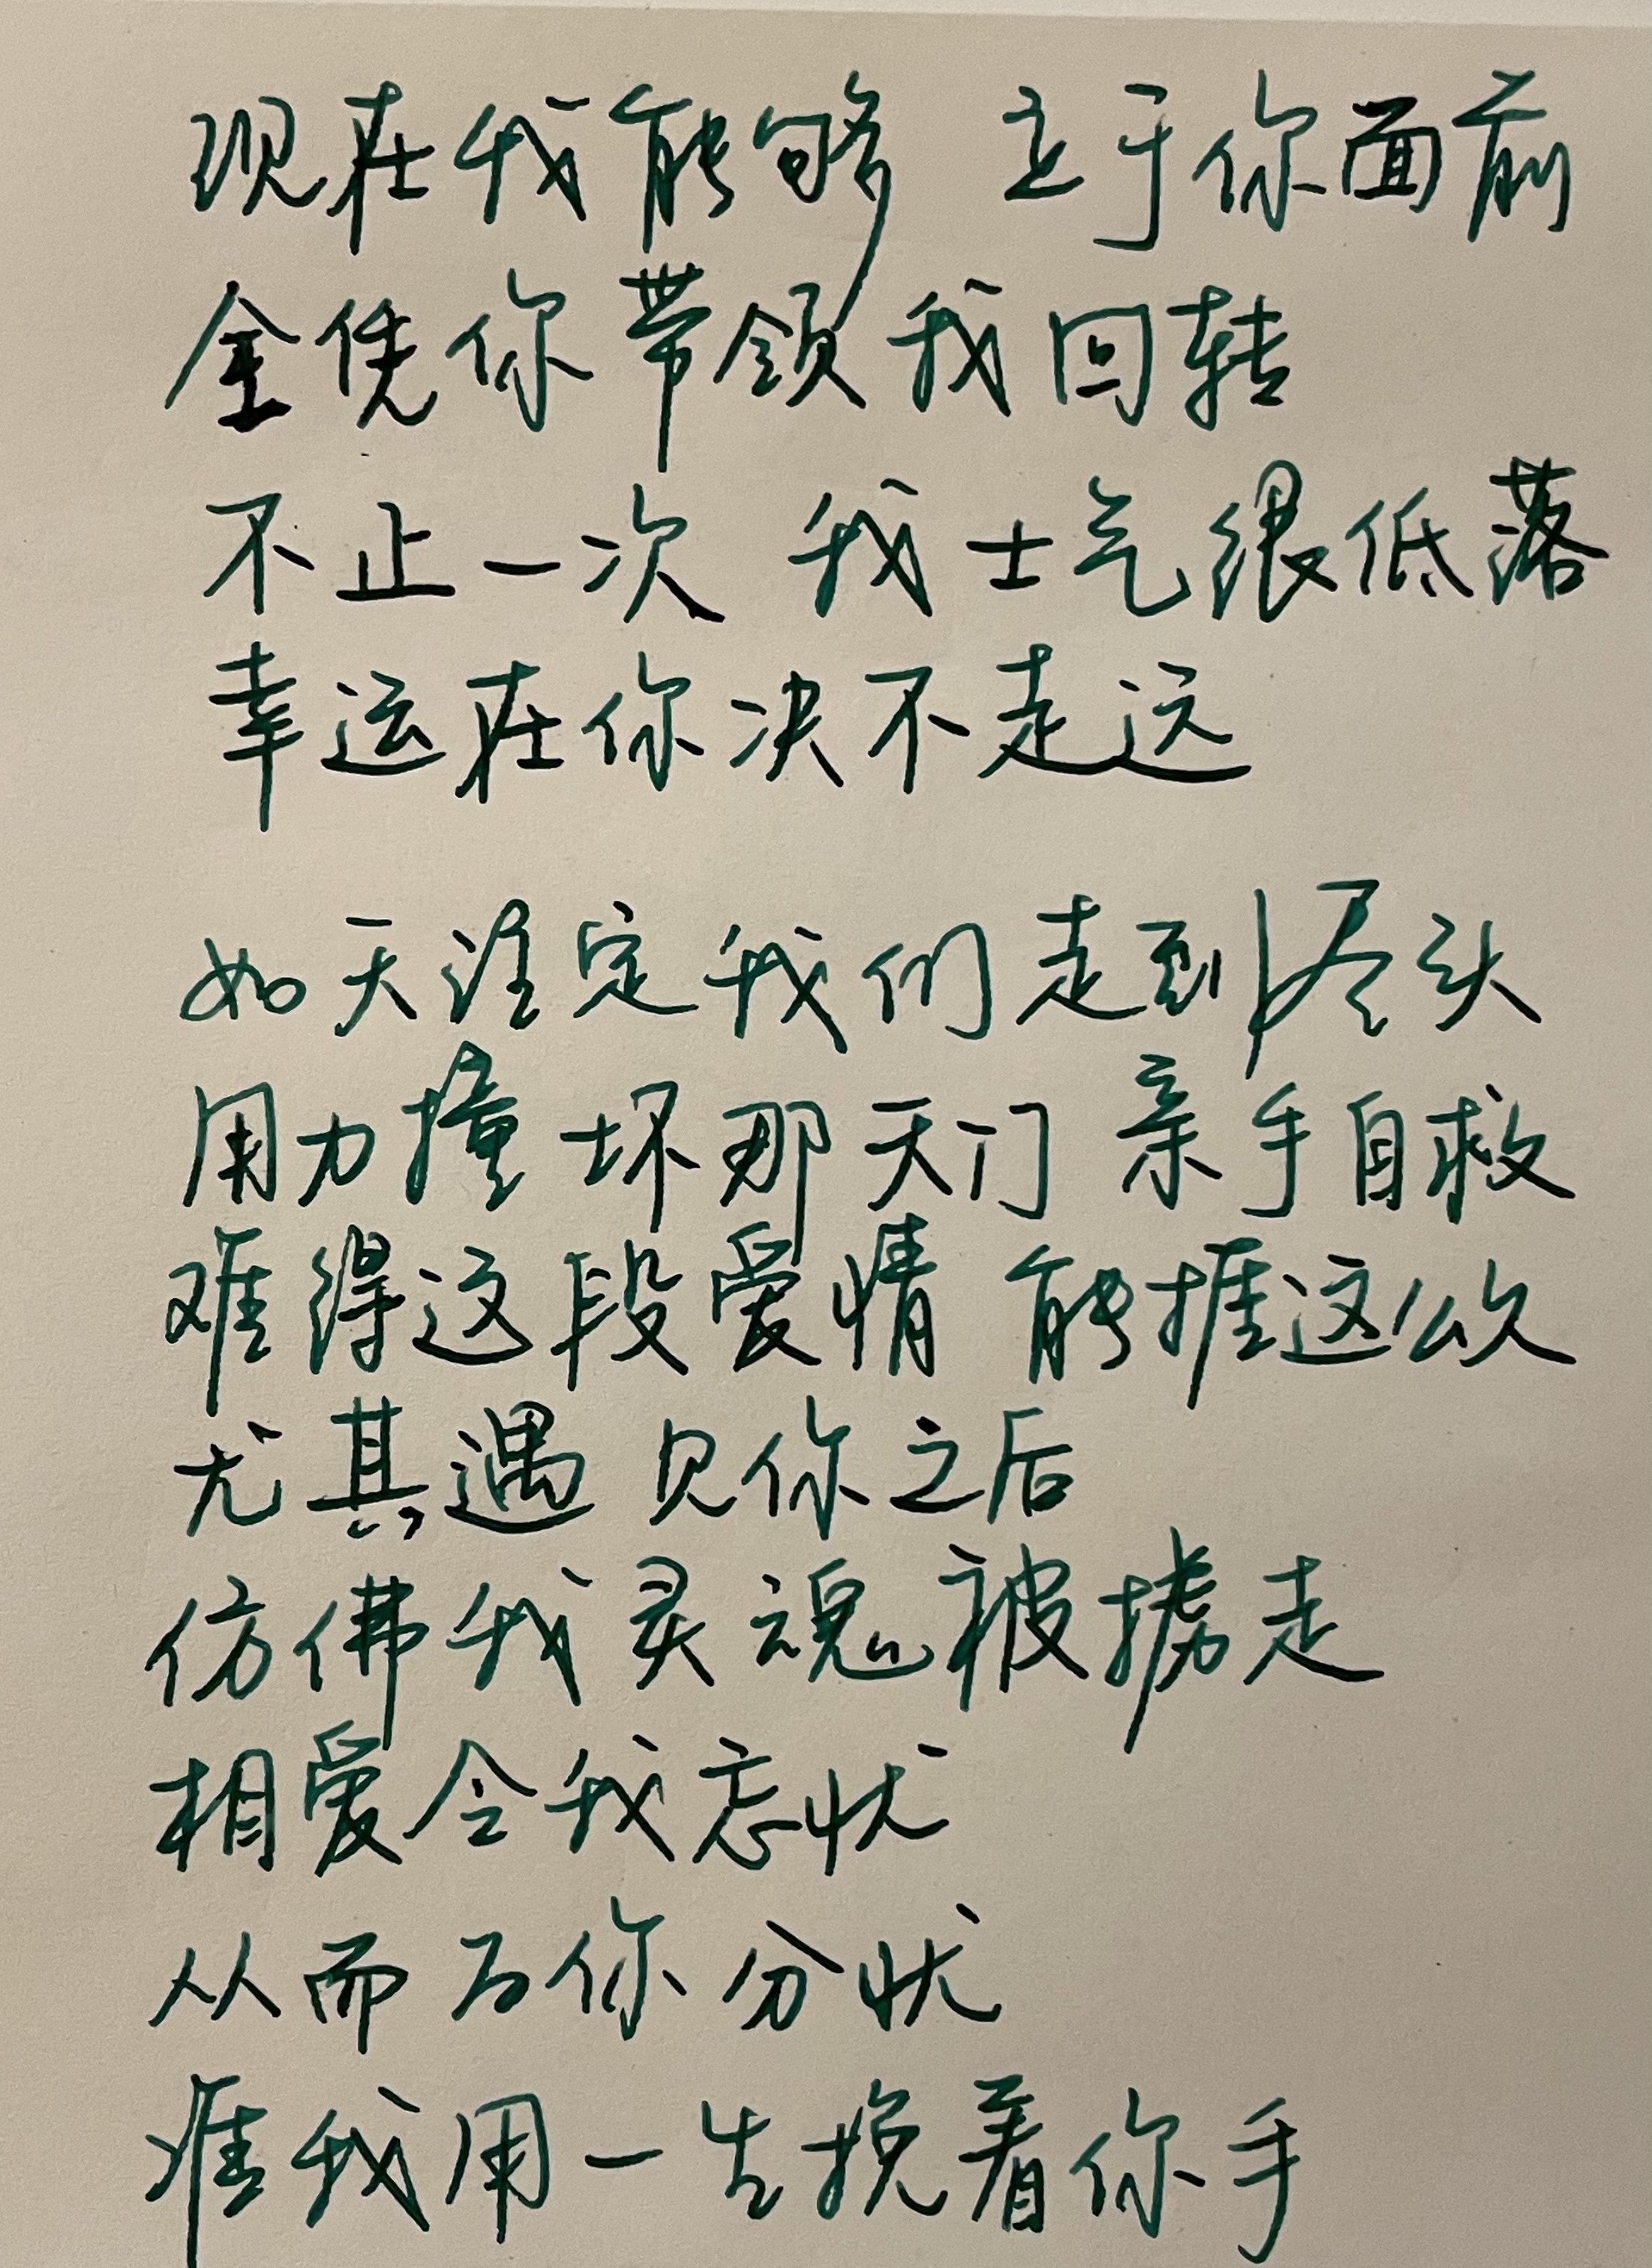 现在我能够 立于你面前
全凭你带领我回转
不止一次 我士气很低落
幸运在你决不走远
如天注定我们走到尽头
用力撞坏那天门 亲手自救
难得这段爱情 能捱这么久
尤其遇见你之后
仿佛我灵魂被掳走
相爱令我忘忧
从而为你分忧
准我用一生挽着你手